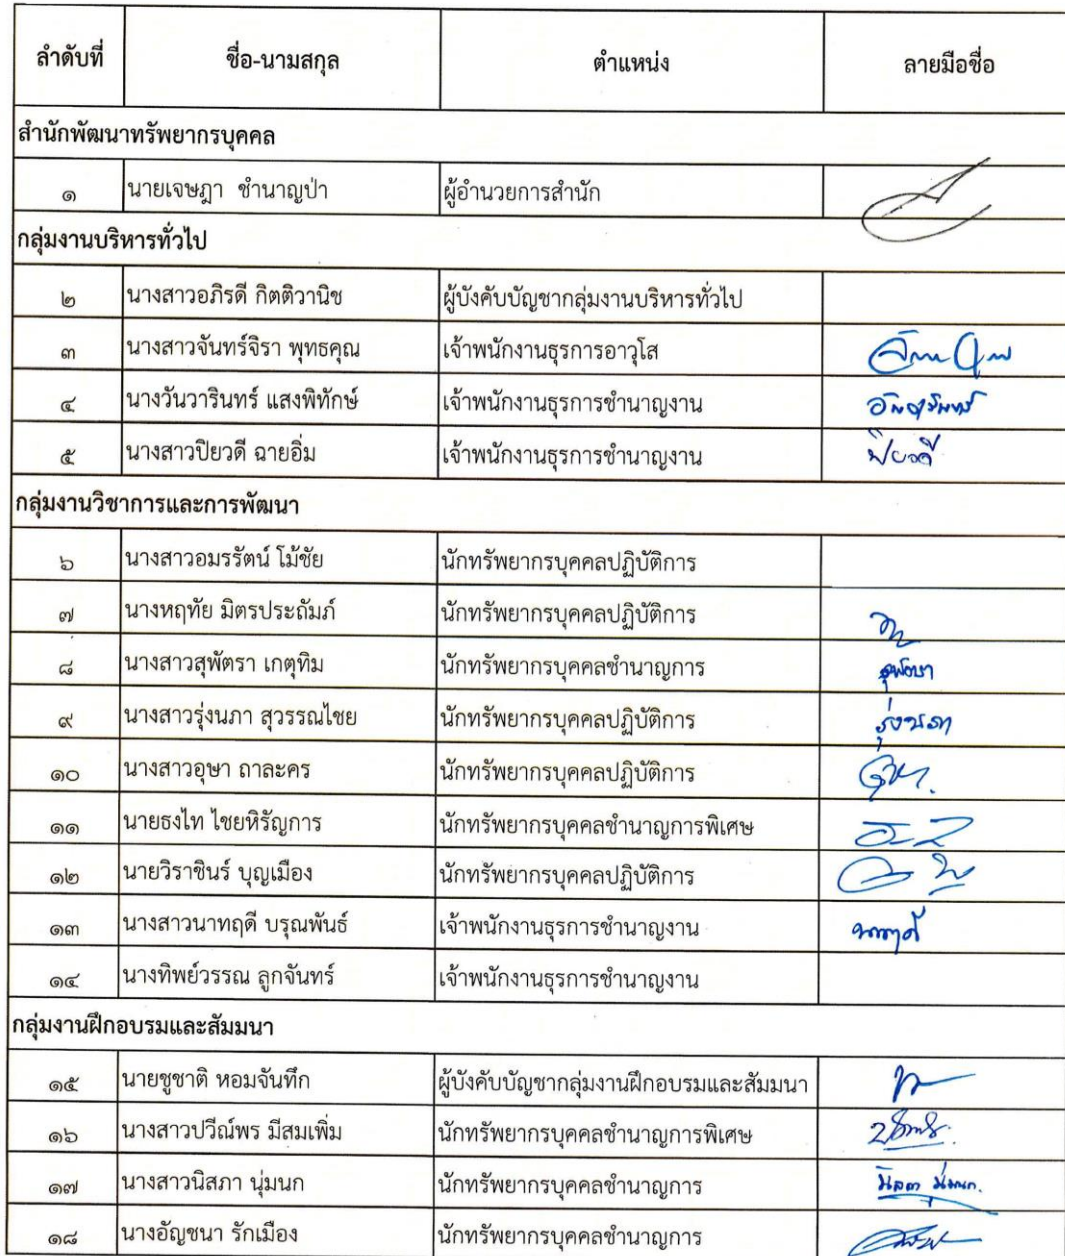 ลำดับที่ ชื่อ-นามสกุล ตำแหน่ง ลายมือชื่อ
สำนักพัฒนาทรัพยากรบุคคล
๑ นายเจษฎา ชำนาญป่า ผู้อำนวยการสำนัก
กลุ่มงานบริหารทั่วไป
๒ นางสาวอภิรดี กิตติวานิช ผู้บังคับบัญชากลุ่มงานบริหารทั่วไป
๓ นางสาวจันทร์จิรา พุทธคุณ เจ้าพนักงานธุรการอาวุโส
๔ นางวันวารินทร์ แสงพิทักษ์ เจ้าพนักงานธุรการชำนาญงาน
๕ นางสาวปิยวดี ฉายอิ่ม เจ้าพนักงานธุรการชำนาญงาน ปิยวดี
กลุ่มงานวิชาการและการพัฒนา
๖ นางสาวอมรรัตน์ โม้ชัย นักทรัพยากรบุคคลปฏิบัติการ
๗ นางหฤทัย มิตรประถัมภ์ นักทรัพยากรบุคคลปฏิบัติการ
๘ นางสาวสุพัตรา เกตุทิม นักทรัพยากรบุคคลชำนาญการ สุพัตรา
๙ นางสาวรุ่งนภา สุวรรณไชย นักทรัพยากรบุคคลปฏิบัติการ รุ่งนภา
๑๐ นางสาวอุษา ถาละคร นักทรัพยากรบุคคลปฏิบัติการ
๑๑ นายธงไท ไชยหิรัญการ นักทรัพยากรบุคคลชำนาญการพิเศษ
๑๒ นายวิราชินร์ บุญเมือง นักทรัพยากรบุคคลปฏิบัติการ
๑๓ นางสาวนาทฤดี บรุณพันธ์ เจ้าพนักงานธุรการชำนาญงาน
๑๔ นางทิพย์วรรณ ลูกจันทร์ เจ้าพนักงานธุรการชำนาญงาน
กลุ่มงานฝึกอบรมและสัมมนา
๑๕ นายชูชาติ หอมจันทึก ผู้บังคับบัญชากลุ่มงานฝึกอบรมและสัมมนา
๑๖ นางสาวปวีณ์พร มีสมเพิ่ม นักทรัพยากรบุคคลชำนาญการพิเศษ
๑๗ นางสาวนิสภา นุ่มนก นักทรัพยากรบุคคลชำนาญการ นิสภา นุ่มนก
๑๘ นางอัญชนา รักเมือง นักทรัพยากรบุคคลชำนาญการ